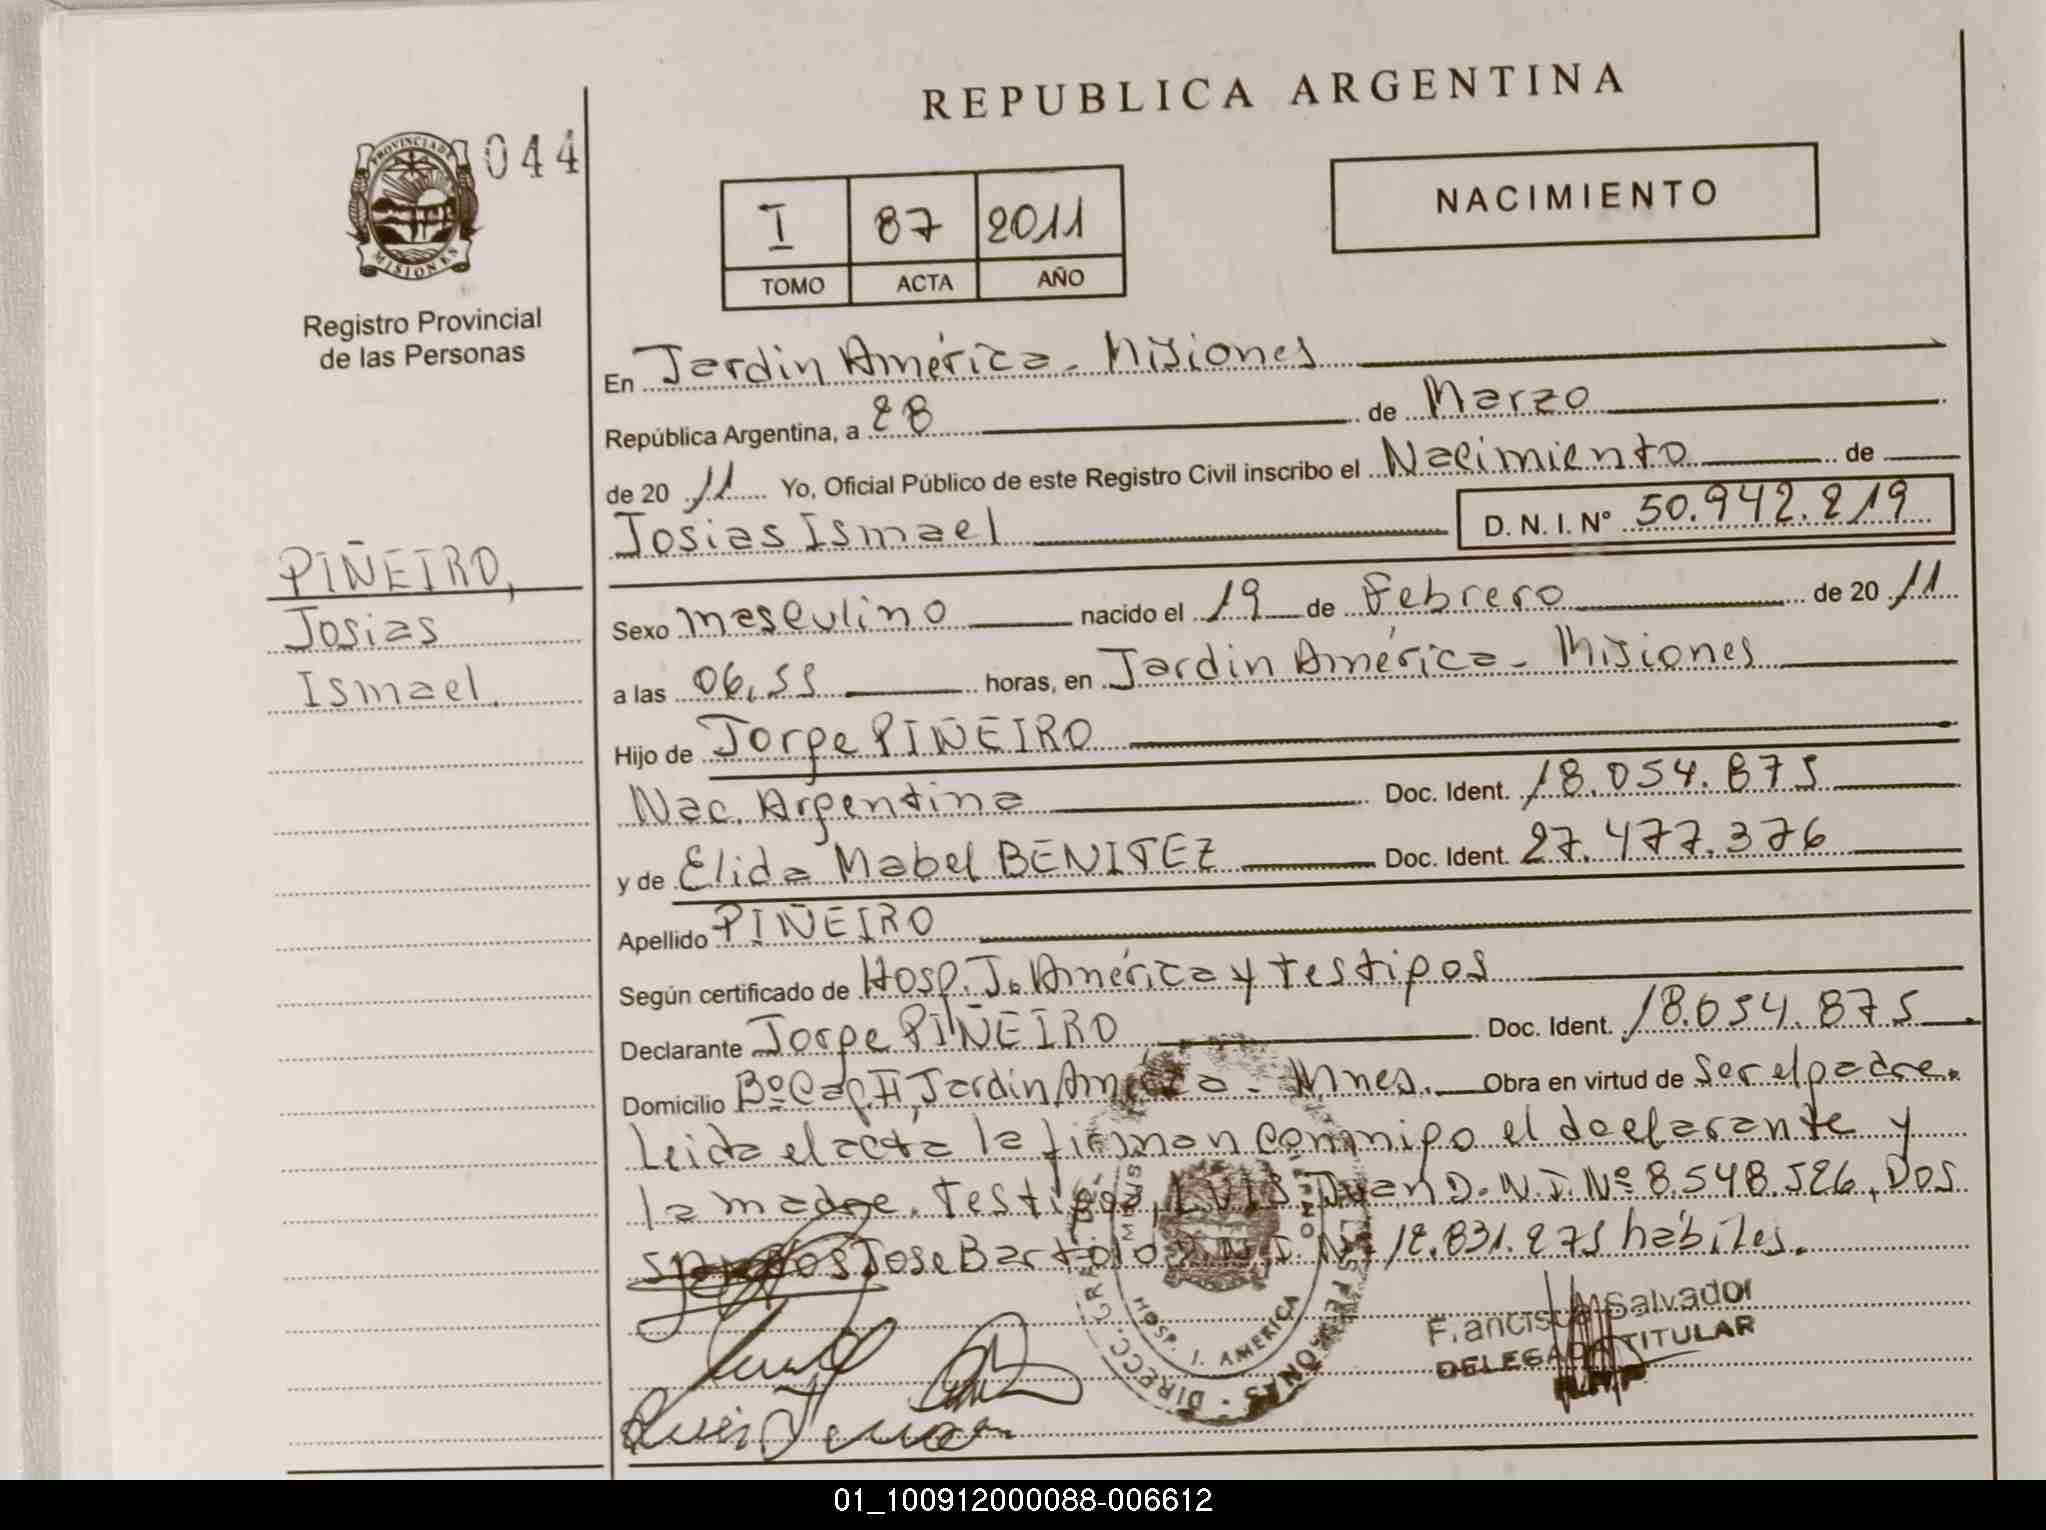 REPUBLICA ARGENTINA
PROVINCIA DE
MISIONES
044
Registro Provincial
de las Personas
I 87 2011
TOMO ACTA AÑO
NACIMIENTO
En Jardin América - Misiones
República Argentina, a 28 de Marzo
de 2011 Yo, Oficial Público de este Registro Civil inscribo el Nacimiento de
Josias Ismael D. N. I. N° 50.942.219
PIÑEIRO,
Josias
Ismael.
Sexo masculino nacido el 19 de Febrero de 2011
a las 06,55 horas, en Jardin América - Misiones
Hijo de Jorge PIÑEIRO
Nac. Argentina Doc. Ident. 18.054.875
y de Elida Mabel BENITEZ Doc. Ident. 27.477.376
Apellido PIÑEIRO
Según certificado de Hosp. J. América y testigos
Declarante Jorge PIÑEIRO Doc. Ident. 18.054.875
Domicilio Bº Cap. II, Jardin América - Mnes. Obra en virtud de ser el padre.
Leida el acta la firman conmigo el declarante y
la madre. Testigos, LUIS Juan D.N.I. Nº 8.548.526, Dos
Santos Jose Bartolo D.N.I. Nº 12.831.275 hábiles.
HOSP. J. AMERICA
Salvador
DELEGADO TITULAR
01_100912000088-006612